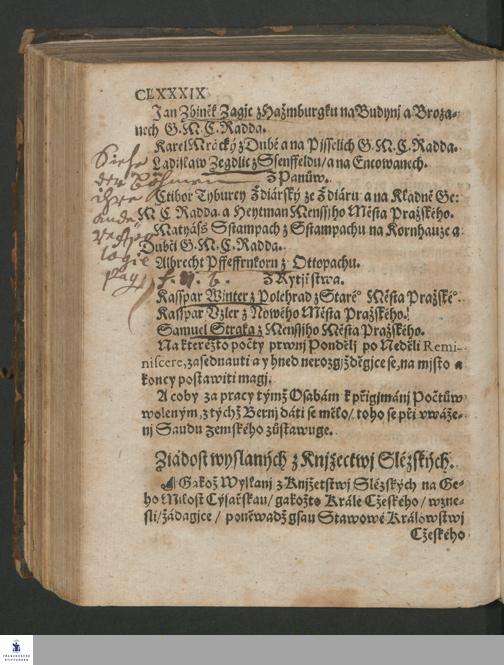 CLXXXIX
Jan Zbiněk Zagjc z Hažmburgku na Budynj a Broza-
nech G. M. C. Radda.
Karel Mracký z Dubé a na Pissělich G. M. C. Radda.
Ladislaw Zegdlic z Ssenffeldu / a na Encowanech.
Z Panůw.
Ctibor Tyburcy Ždiárský ze Ždiáru a na Kladně Ge:
M C Radda. a Heytman Menssjho Města Pražského.
Matyáss Sstampach z Sstampachu na Kornhauze a
Dubči G. M. C. Radda.
Albrecht Pffeffrnkorn z Ottopachu.
Z Rytjřstwa.
Kasspar Winter z Polehrad z Staré° Města Pražské°.
Kasspar Vzler z Nowého Města Pražského.
Samuel Straka z Menssjho Města Pražského.
Na kteréžto počty prwnj Pondělj po Neděli Remi-
niscere, zasednauti a y hned nerozgjžděgjce se, na mjsto a
koncy postawiti magj.
A coby za pracy týmž Osobám k přigjmánj Počtůw
woleným, z týchž Bernj dáti se mělo / toho se při vwáže-
nj Saudu zemského zůstawuge.
Žiádost wyslaných z Knjžectwj Slézských.
Gakož Wyslanj z Knjžetstwj Slézských na Ge-
ho Milost Cýsařskau / gakožto Krále Cžeského / wzne-
sli / žádagjce / poněwadž gsau Stawowé Králowstwj
Cžeského
Siehe
der Böhmen
ihre
ande
Re
logie
pag.
FRANCKESCHE
STIFTUNGEN